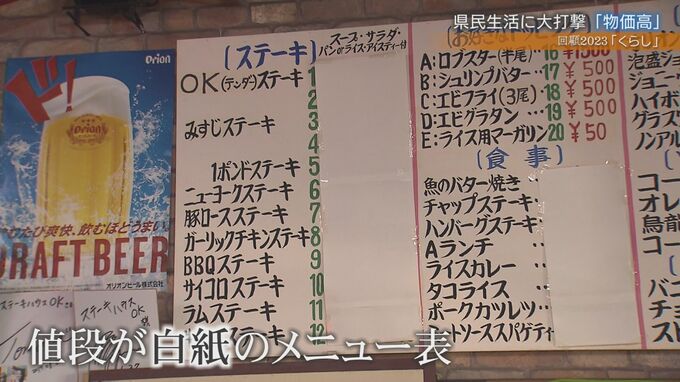 県民生活に大打撃「物価高」
回顧2023「くらし」
Orion
ド!
Orion
飲むほどうまい
DRAFT BEER
オリオンビール株式会社
ステーキハウスOK
ステーキハウス
OK
〔ステーキ〕
スープ・サラダ・
パンorライス・アイスティー付
OK(テンダー)ステーキ 1
2
3
みすじステーキ 4
5
1ポンドステーキ
ニューヨークステーキ 6
豚ロースステーキ 7
ガーリックチキンステーキ 8
BBQステーキ 9
サイコロステーキ 10
ラムステーキ 11
12
A:ロブスター(半尾) 16
B:シュリンプバター・17 ¥500
C:エビフライ(3尾)・18 ¥500
D:エビグラタン・・・19 ¥500
E:ライス用マーガリン20 ¥50
〔食事〕
魚のバター焼き
チャップステーキ・
ハンバーグステーキ
Aランチ ・・
ライスカレー ・・・
タコライス ・・・
ポークカツレツ・・
ートソーススパゲティ
泡盛
ジョニ
ハイボ
グラス
ノンアル
コー
オレ
烏龍
コー
バニ
チョ
スト
値段が白紙のメニュー表